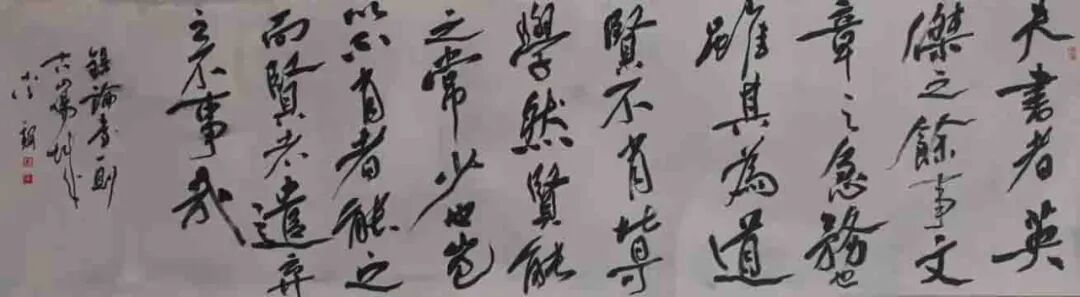 夫書者英
傑之餘事文
章之急務也
雖其為道
賢不肖皆可
學然賢能
之常少也豈
以不肖者能之
而賢者遺棄
之不事哉
錄論書一則